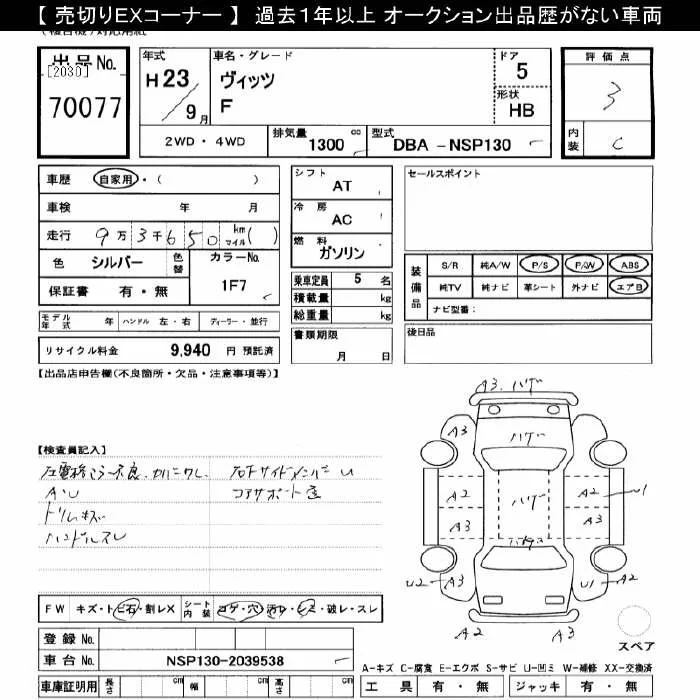 【 売切りEXコーナー 】 過去1年以上 オークション出品歴がない車両
出品 No.
[2030]
70077
年式 H 23 / 9 月
車名・グレード
ヴィッツ
F
ドア 5
形状 HB
2WD ・ 4WD 排気量 1300 cc 型式 DBA - NSP130
評価点 3
内装 C
車歴 自家用 ・ ( )
車検 年 月
走行 9万 3千6 5 0 km マイル ( )
色 シルバー 色替 カラーNo. 1F7
保証書 有 ・ 無
モデル年式 年 ハンドル 左 ・ 右 ディーラー ・ 並行
リサイクル料金 9,940 円 預託済
シフト AT
冷房 AC
燃料 ガソリン
乗車定員 5 名
積載量 kg
総重量 kg
書類期限
月 日
セールスポイント
装備品
S/R 純A/W P/S P/W ABS
純TV 純ナビ 革シート 外ナビ エアB
ナビ型番：
後日品
【出品店申告欄(不良箇所・欠品・注意事項等)】
【検査員記入】
A・U
ドリムキズ
ハンドルスレ
右下サイドメンバー U
コアサポート
FW キズ・トビ石・割レX シート内装 コゲ・穴 汚レ・シミ・破レ・スレ
登録 No.
車台 No. NSP130-2039538
車庫証明用 長さ cm 幅 cm 高さ cm
A3 ハゲ
A3 ハゲ A3
A2 ハゲ A2 U1
A3 A3
U2 A3 U1 A2
A2 A3
スペア
A-キズ C-腐食 E-エクボ S-サビ U-凹ミ W-補修 XX-交換済
工具 有 ・ 無 ジャッキ 有 ・ 無